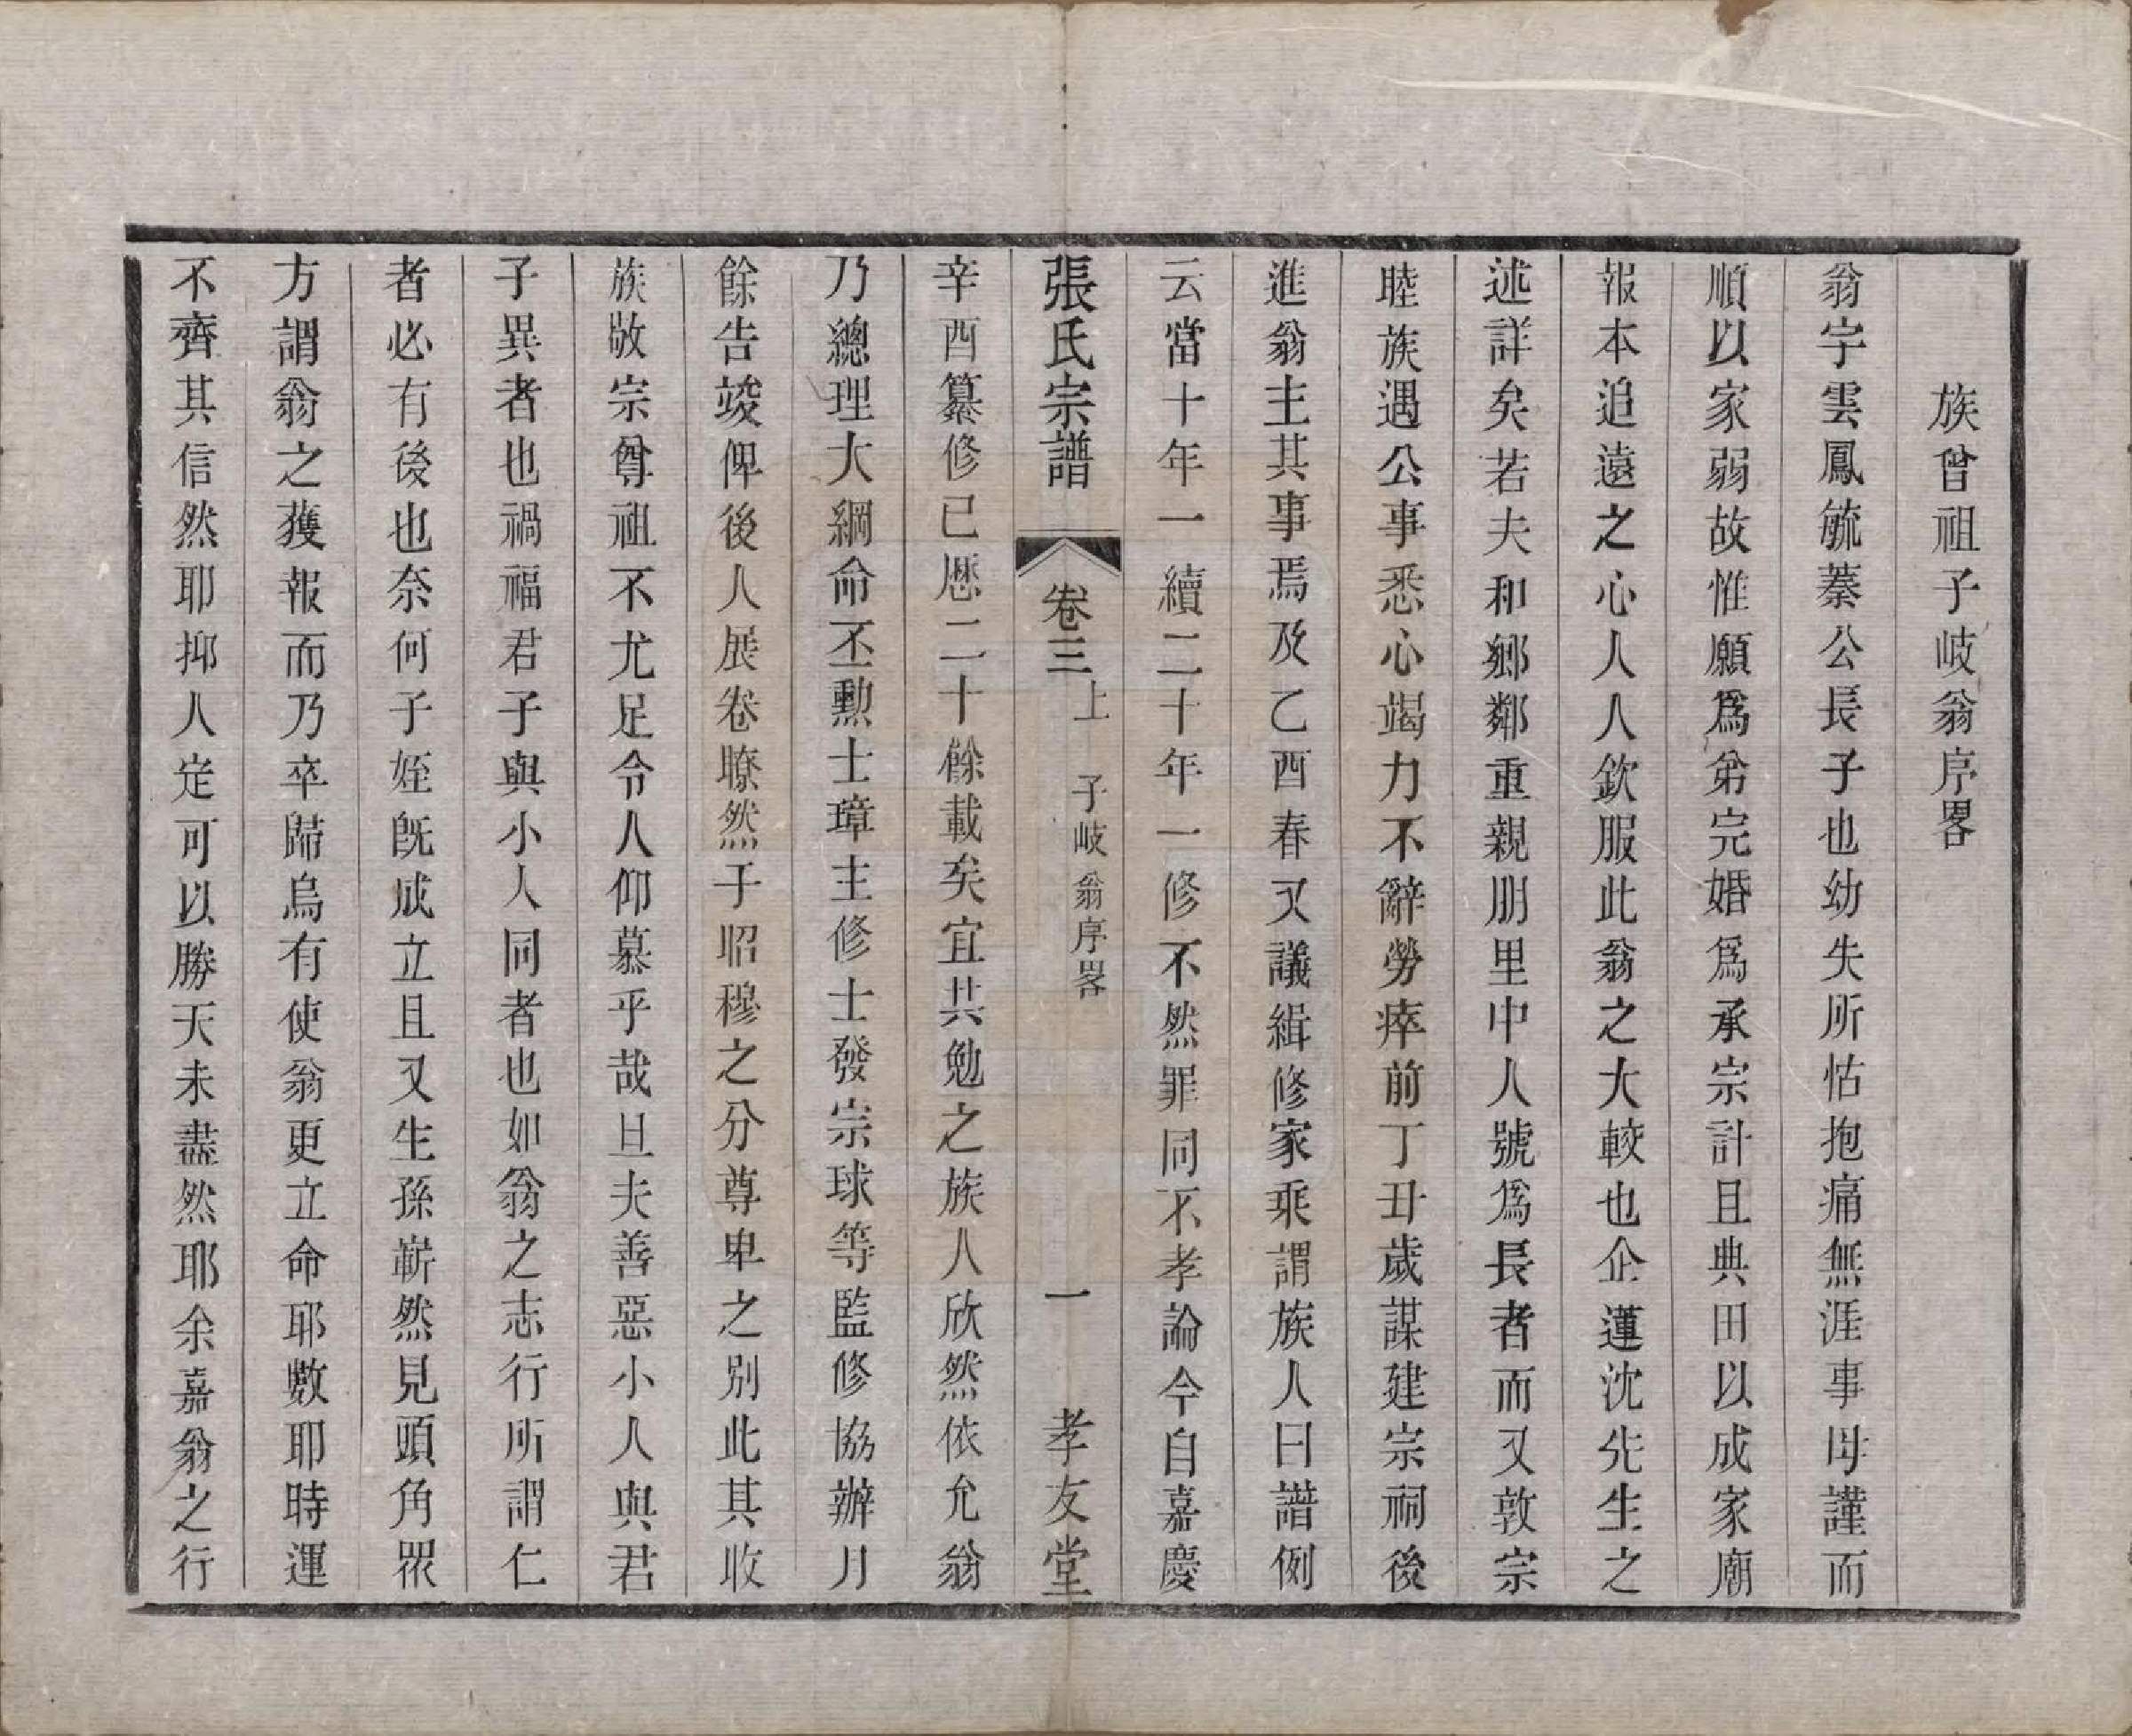 族曾祖子岐翁序畧
翁字雲鳳毓蓁公長子也幼失所怙抱痛無涯事母謹而
順以家弱故惟願爲弟完婚爲承宗計且典田以成家廟
報本追遠之心人人欽服此翁之大較也企蓮沈先生之
述詳矣若夫和鄉鄰重親朋里中人號爲長者而又敦宗
睦族遇公事悉心竭力不辭勞瘁前丁丑歲謀建宗祠後
進翁主其事焉及乙酉春又議緝修家乘謂族人曰譜例
云當十年一續二十年一修不然罪同不孝論今自嘉慶
張氏宗譜 卷三上 子岐翁序畧 一 孝友堂
辛酉纂修已歷二十餘載矣宜共勉之族人欣然依允翁
乃總理大綱命丕勳士璋主修士發宗球等監修協辦月
餘告竣俾後人展卷瞭然于昭穆之分尊卑之別此其收
族敬宗尊祖不尤足令人仰慕乎哉且夫善惡小人與君
子異者也禍福君子與小人同者也如翁之志行所謂仁
者必有後也奈何子姪旣成立且又生孫嶄然見頭角眾
方謂翁之獲報而乃卒歸烏有使翁更立命耶數耶時運
不齊其信然耶抑人定可以勝天未盡然耶余嘉翁之行